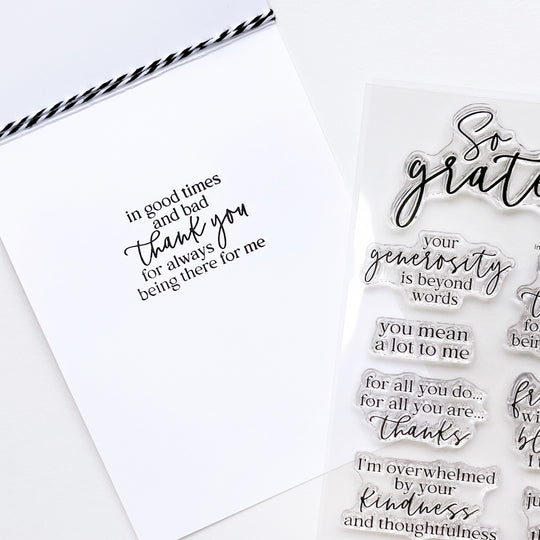 in good times
and bad
thank you
for always
being there for me
So
your
generosity
is beyond
words
you mean
a lot to me
for all you do...
for all you are...
thanks
I'm overwhelmed
by your
kindness
and thoughtfulness